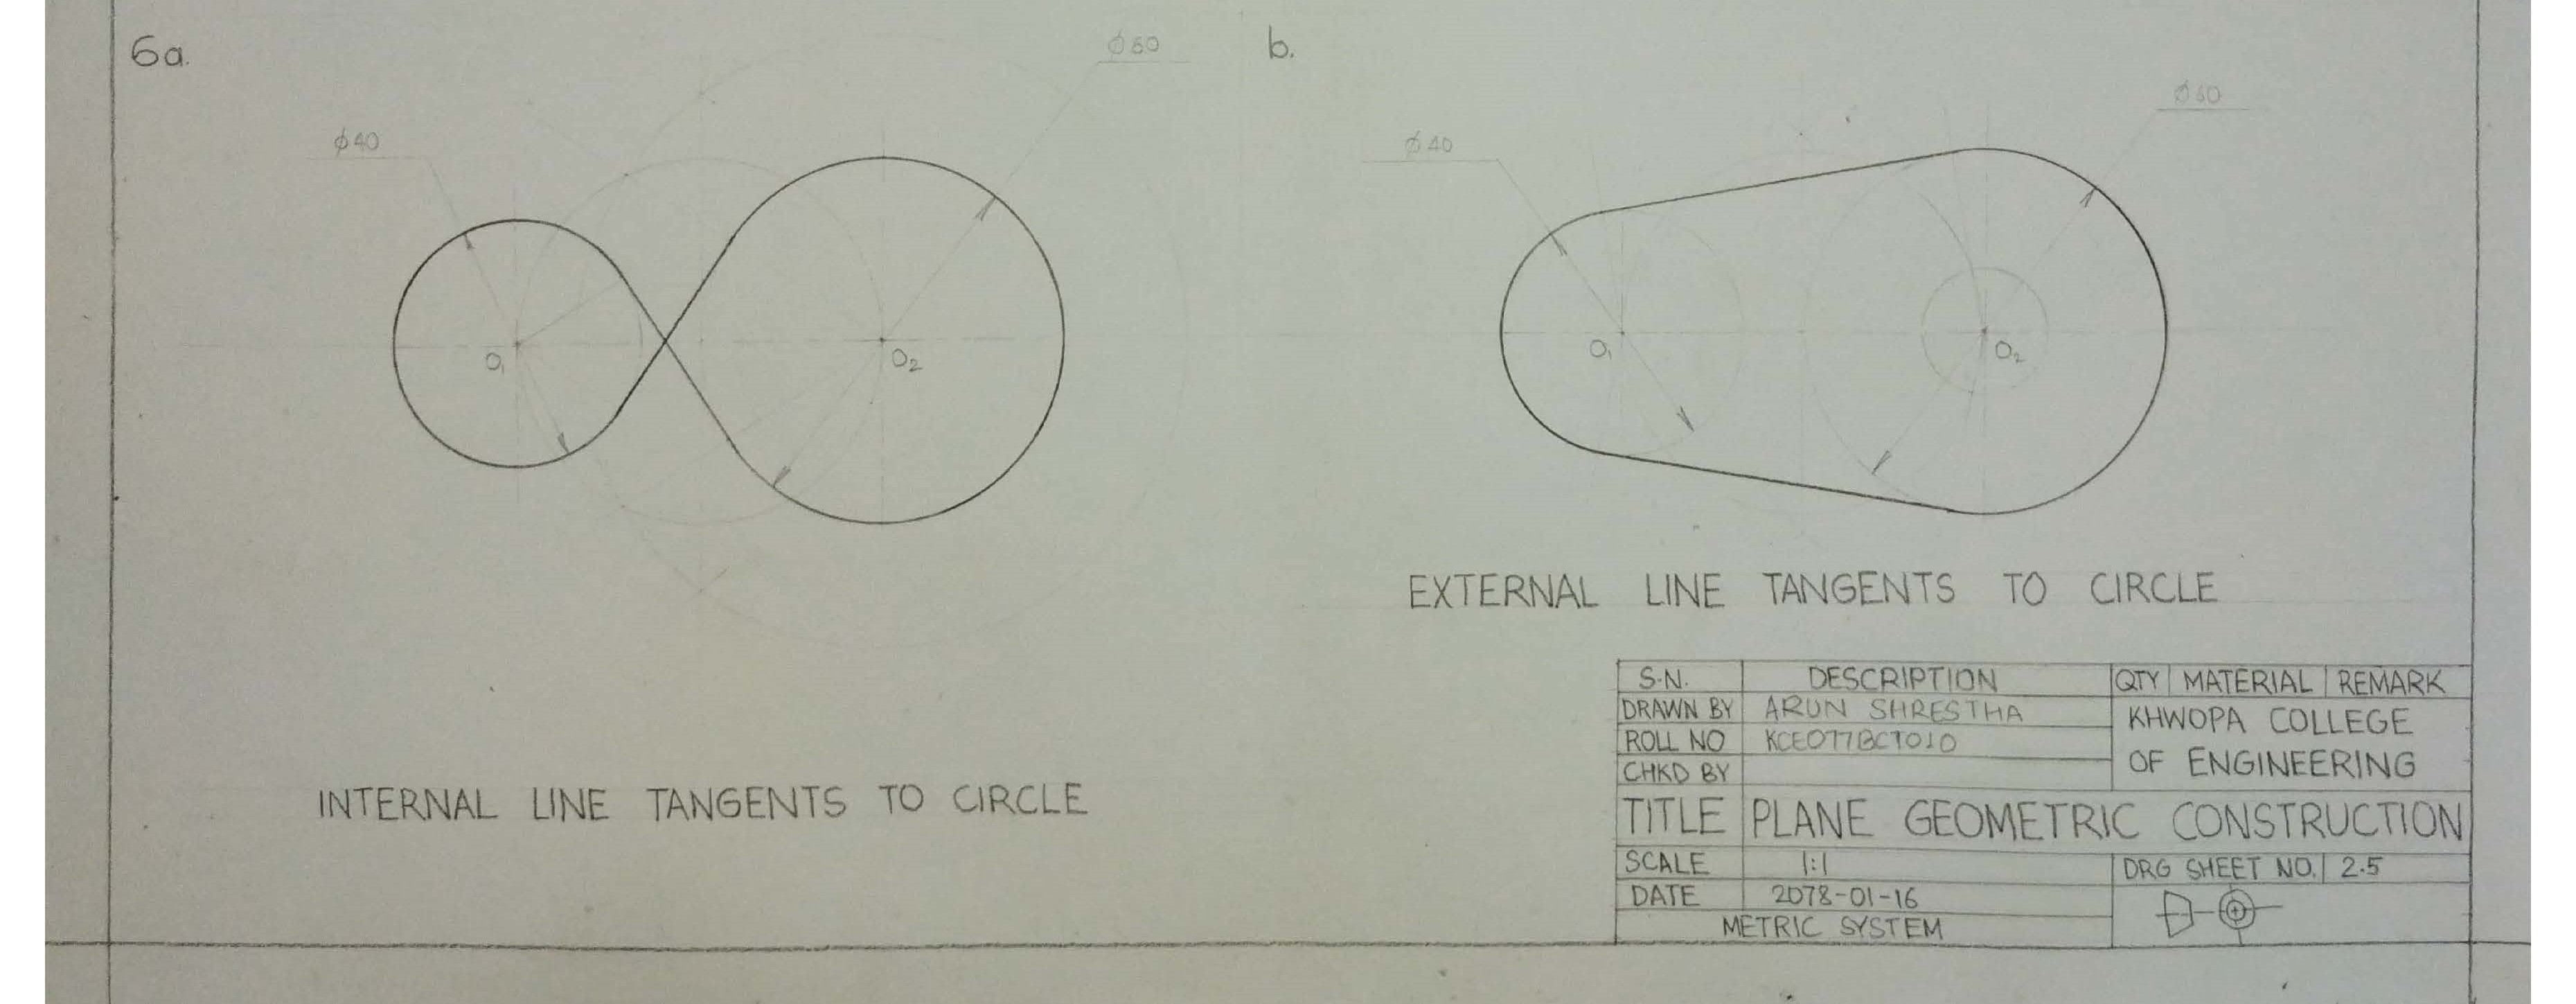 6a.
ϕ40
ϕ60
O₁
O₂
INTERNAL LINE TANGENTS TO CIRCLE
b.
ϕ40
ϕ60
O₁
O₂
EXTERNAL LINE TANGENTS TO CIRCLE
S.N. DESCRIPTION QTY MATERIAL REMARK
DRAWN BY ARUN SHRESTHA
ROLL NO KCE077BCT010
CHKD BY
KHWOPA COLLEGE
OF ENGINEERING
TITLE PLANE GEOMETRIC CONSTRUCTION
SCALE 1:1 DRG SHEET NO. 2.5
DATE 2078-01-16
METRIC SYSTEM